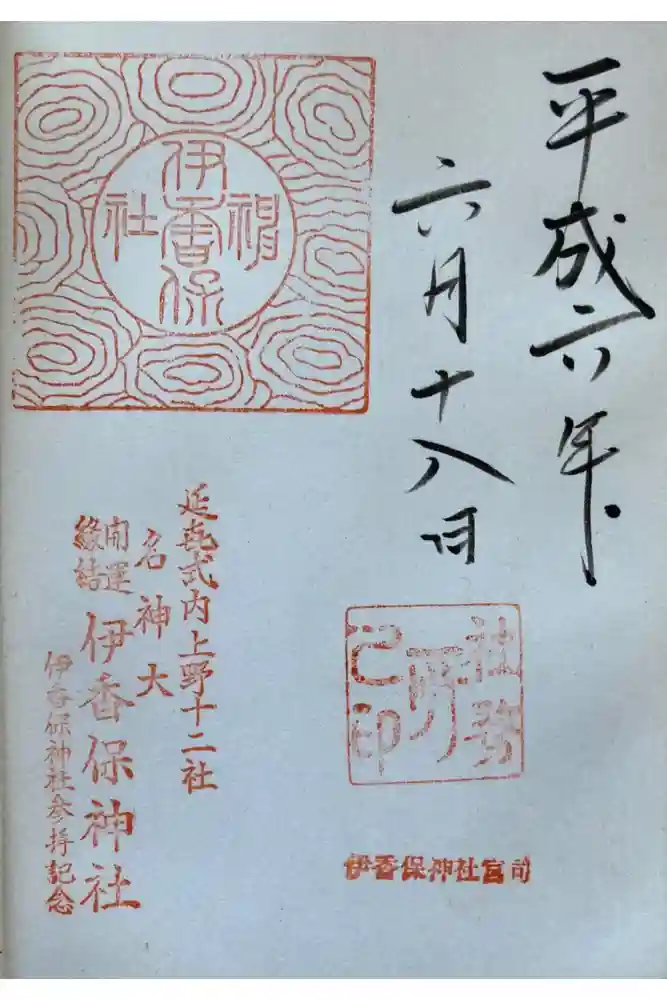 平成六年
六月十八日
伊香保
神社
延喜式内上野十二社
名神大
開運
縁結
伊香保神社
伊香保神社参拝記念
社務所
之印
伊香保神社宮司